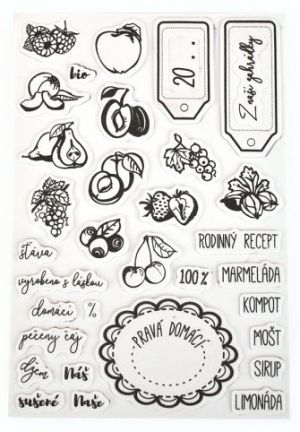 bio
20 . .
Z naší zahrádky
šťáva
RODINNÝ RECEPT
vyrobeno s láskou
100%
MARMELÁDA
domácí
%
KOMPOT
pečený čaj
PRAVÁ DOMÁCÍ
MOŠT
džem
Náš
SIRUP
sušené
Naše
LIMONÁDA